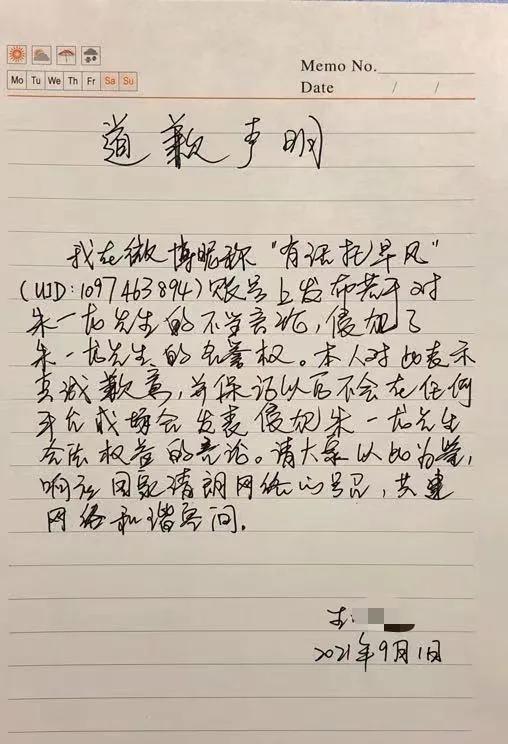 Mo Tu We Th Fr Sa Su
Memo No.
Date / /
道歉声明
我在微博昵称"有话托早风"
(UID:1097463894)账号上发布若干对
朱一龙先生的不当言论,侵犯了
朱一龙先生的名誉权。本人对此表示
真诚歉意,并保证以后不会在任何
平台或场合发表侵犯朱一龙先生
合法权益的言论。请大家以此为鉴,
响应国家清朗网络的号召,共建
网络和谐空间。
2021年9月1日